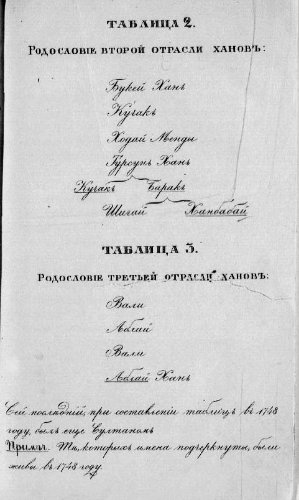 ТАБЛИЦА 2.
РОДОСЛОВІЕ ВТОРОЙ ОТРАСЛИ ХАНОВЪ:
Букей Ханъ
Кучакъ
Ходай Менды
Турсунъ Ханъ
Кучакъ Баракъ
Шигай Ханбабай
ТАБЛИЦА 3.
РОДОСЛОВІЕ ТРЕТЬЕЙ ОТРАСЛИ ХАНОВЪ:
Вали
Аблай
Вали
Аблай Ханъ
Сей послѣдній, при составленіи таблицъ въ 1748
году, былъ еще Султаномъ
Примѣч. Тѣ, которыхъ имена подчеркнуты, были
живы въ 1748 году.